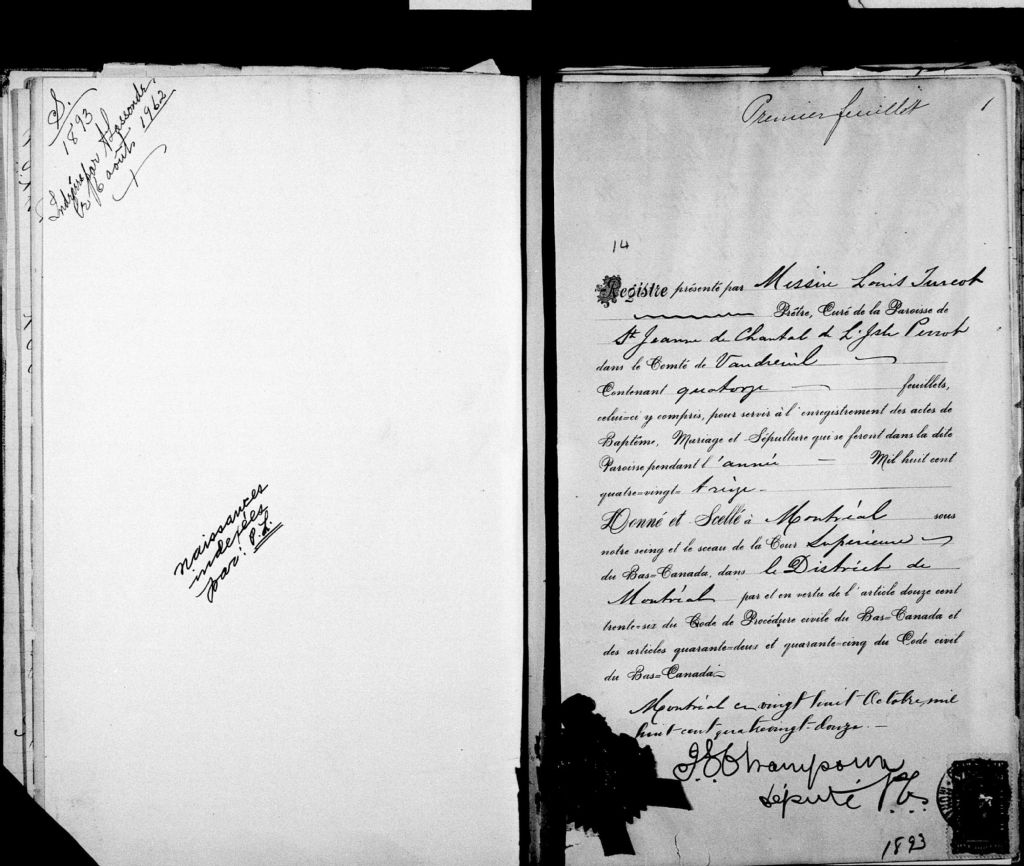 S.
1893
Indexé par
le 16 août 1962
naissances
indexées
par: P.L.
Premier feuillet
1
14
Registre présenté par Messire Louis Turcot
Prêtre, Curé de la Paroisse de
Ste Jeanne de Chantal de L'Isle Perrot
dans le Comté de Vaudreuil
Contenant quatorze feuillets,
celui-ci y compris, pour servir à l'enregistrement des actes de
Baptême, Mariage et Sépulture qui se feront dans la dite
Paroisse pendant l'année Mil huit cent
quatre-vingt-treize
Donné et Scellé à Montréal sous
notre seing et le sceau de la Cour Supérieure
du Bas-Canada, dans le District de
Montréal par et en vertu de l'article douze cent
trente-six du Code de Procédure civile du Bas-Canada et
des articles quarante-deux et quarante-cinq du Code civil
du Bas-Canada
Montréal ce vingt huit Octobre mil
huit cent quatrevingt-douze.
député P.C.S.
1893